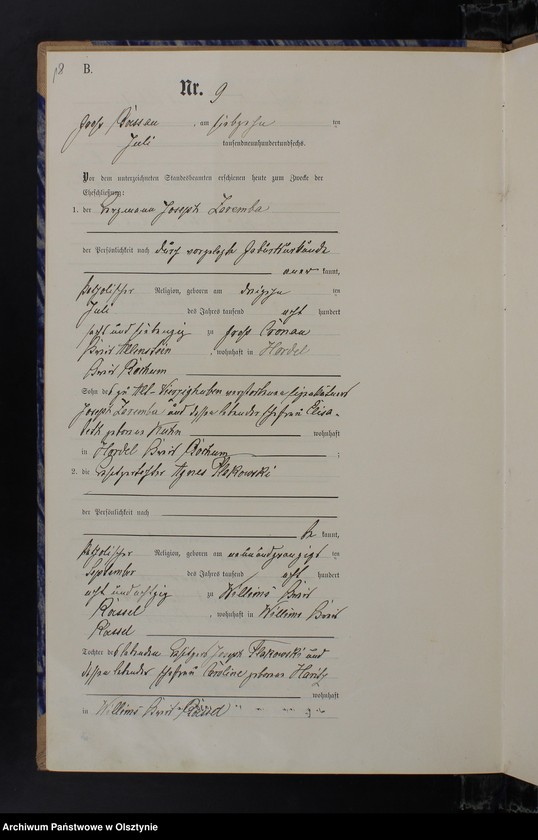 18
B.
Nr. 9
Groß Rössau, am siebzehn ten
Juli tausendneunhundertundsechs.
Vor dem unterzeichneten Standesbeamten erschienen heute zum Zwecke der
Eheschließung:
1. der Bergmann Joseph Zaremba
der Persönlichkeit nach durch vorgelegte Geburtsurkunde
aner kannt,
katholischer Religion, geboren am dreizehn ten
Juli des Jahres tausend acht hundert
und siebenzig zu Groß Cronau
Kreis Allenstein, wohnhaft in Hordel
Kreis Bochum
Sohn des zu Alt-Vierzighuben verstorbenen
Joseph Zaremba und dessen lebender Ehefrau Elisa-
beth geborene Kuhn wohnhaft
in Hordel Kreis Bochum;
2. die Besitzertochter Agnes Flakowski
der Persönlichkeit nach
be kannt,
katholischer Religion, geboren am neunundzwanzigst ten
September des Jahres tausend acht hundert
acht und achtzig zu Willims Kreis
Rössel, wohnhaft in Willims Kreis
Rössel
Tochter des lebenden Besitzers Joseph Flakowski und
dessen lebender Ehefrau Caroline geborene
wohnhaft
in Willims Kreis Rössel
Archiwum Państwowe w Olsztynie